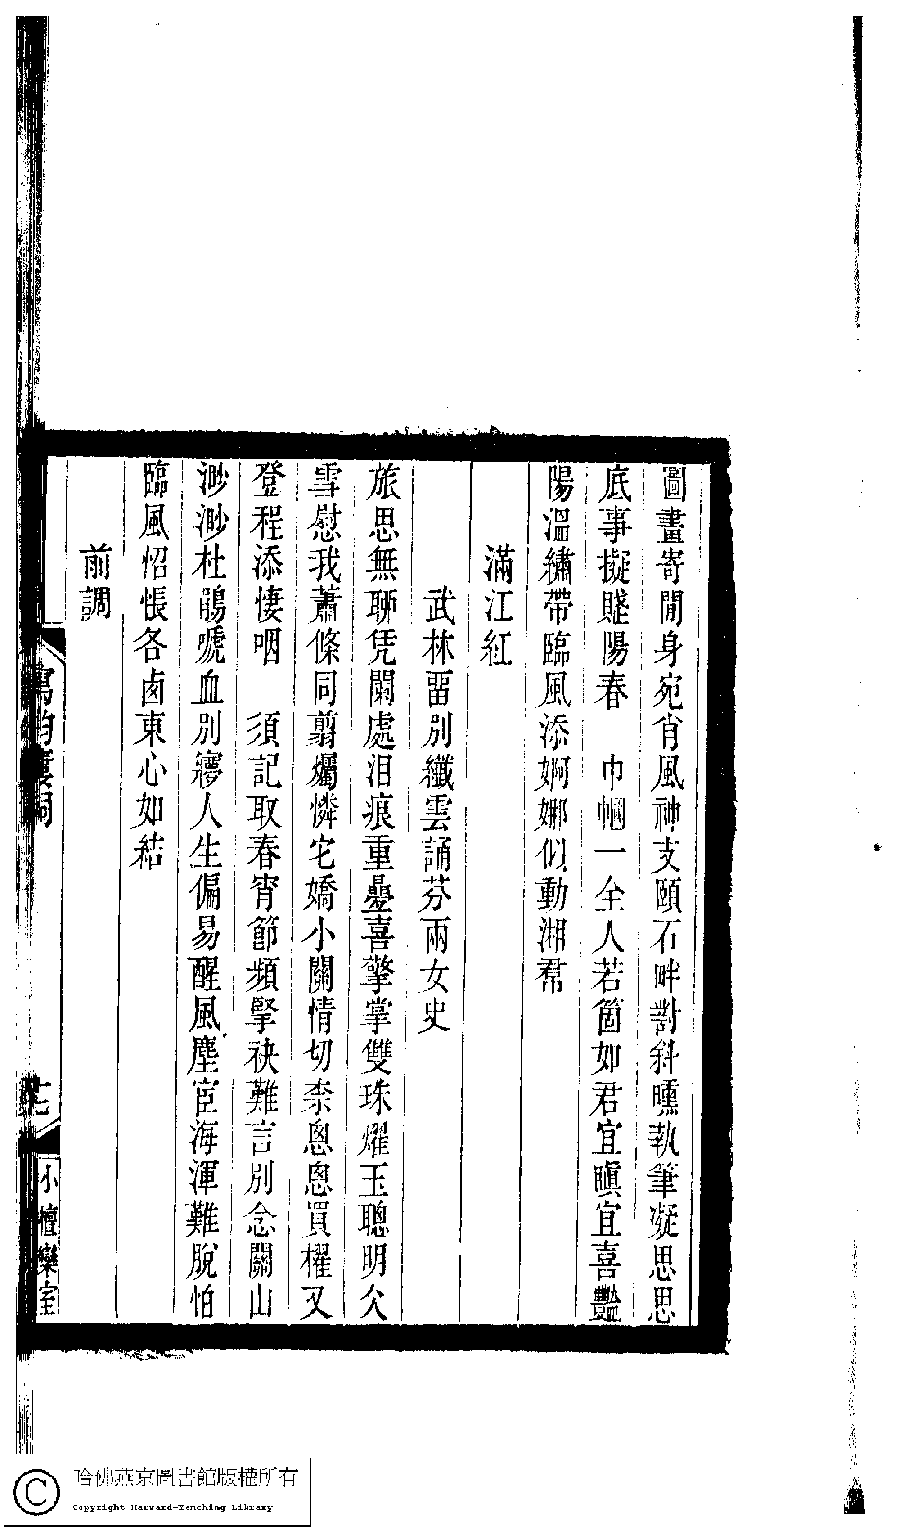 圖畫寄閒身宛肖風神支頤石畔對斜曛執筆凝思思
底事擬賤陽春　巾幗一全人若箇如君宜瞋宜喜豔
陽溫繡帶臨風添婀娜似動湘帬
滿江紅
武林畱別纖雲誦芬兩女史
旅思無聊凭闌處泪痕重疊喜擎掌雙珠燿玉聰明仌
雪慰我蕭條同翦燭憐它嬌小關情切柰恖恖買櫂又
登程添悽咽　須記取春宵節頻擥袂難言別念關山
渺渺杜鵑嗁血別寱人生偏易醒風塵宦海渾難脫怕
臨風怊悵各鹵東心如結
前調
寫韵樓詞
十七
小檀欒室
哈佛燕京圖書館版權所有
Copyright Harvard-Yenching Library